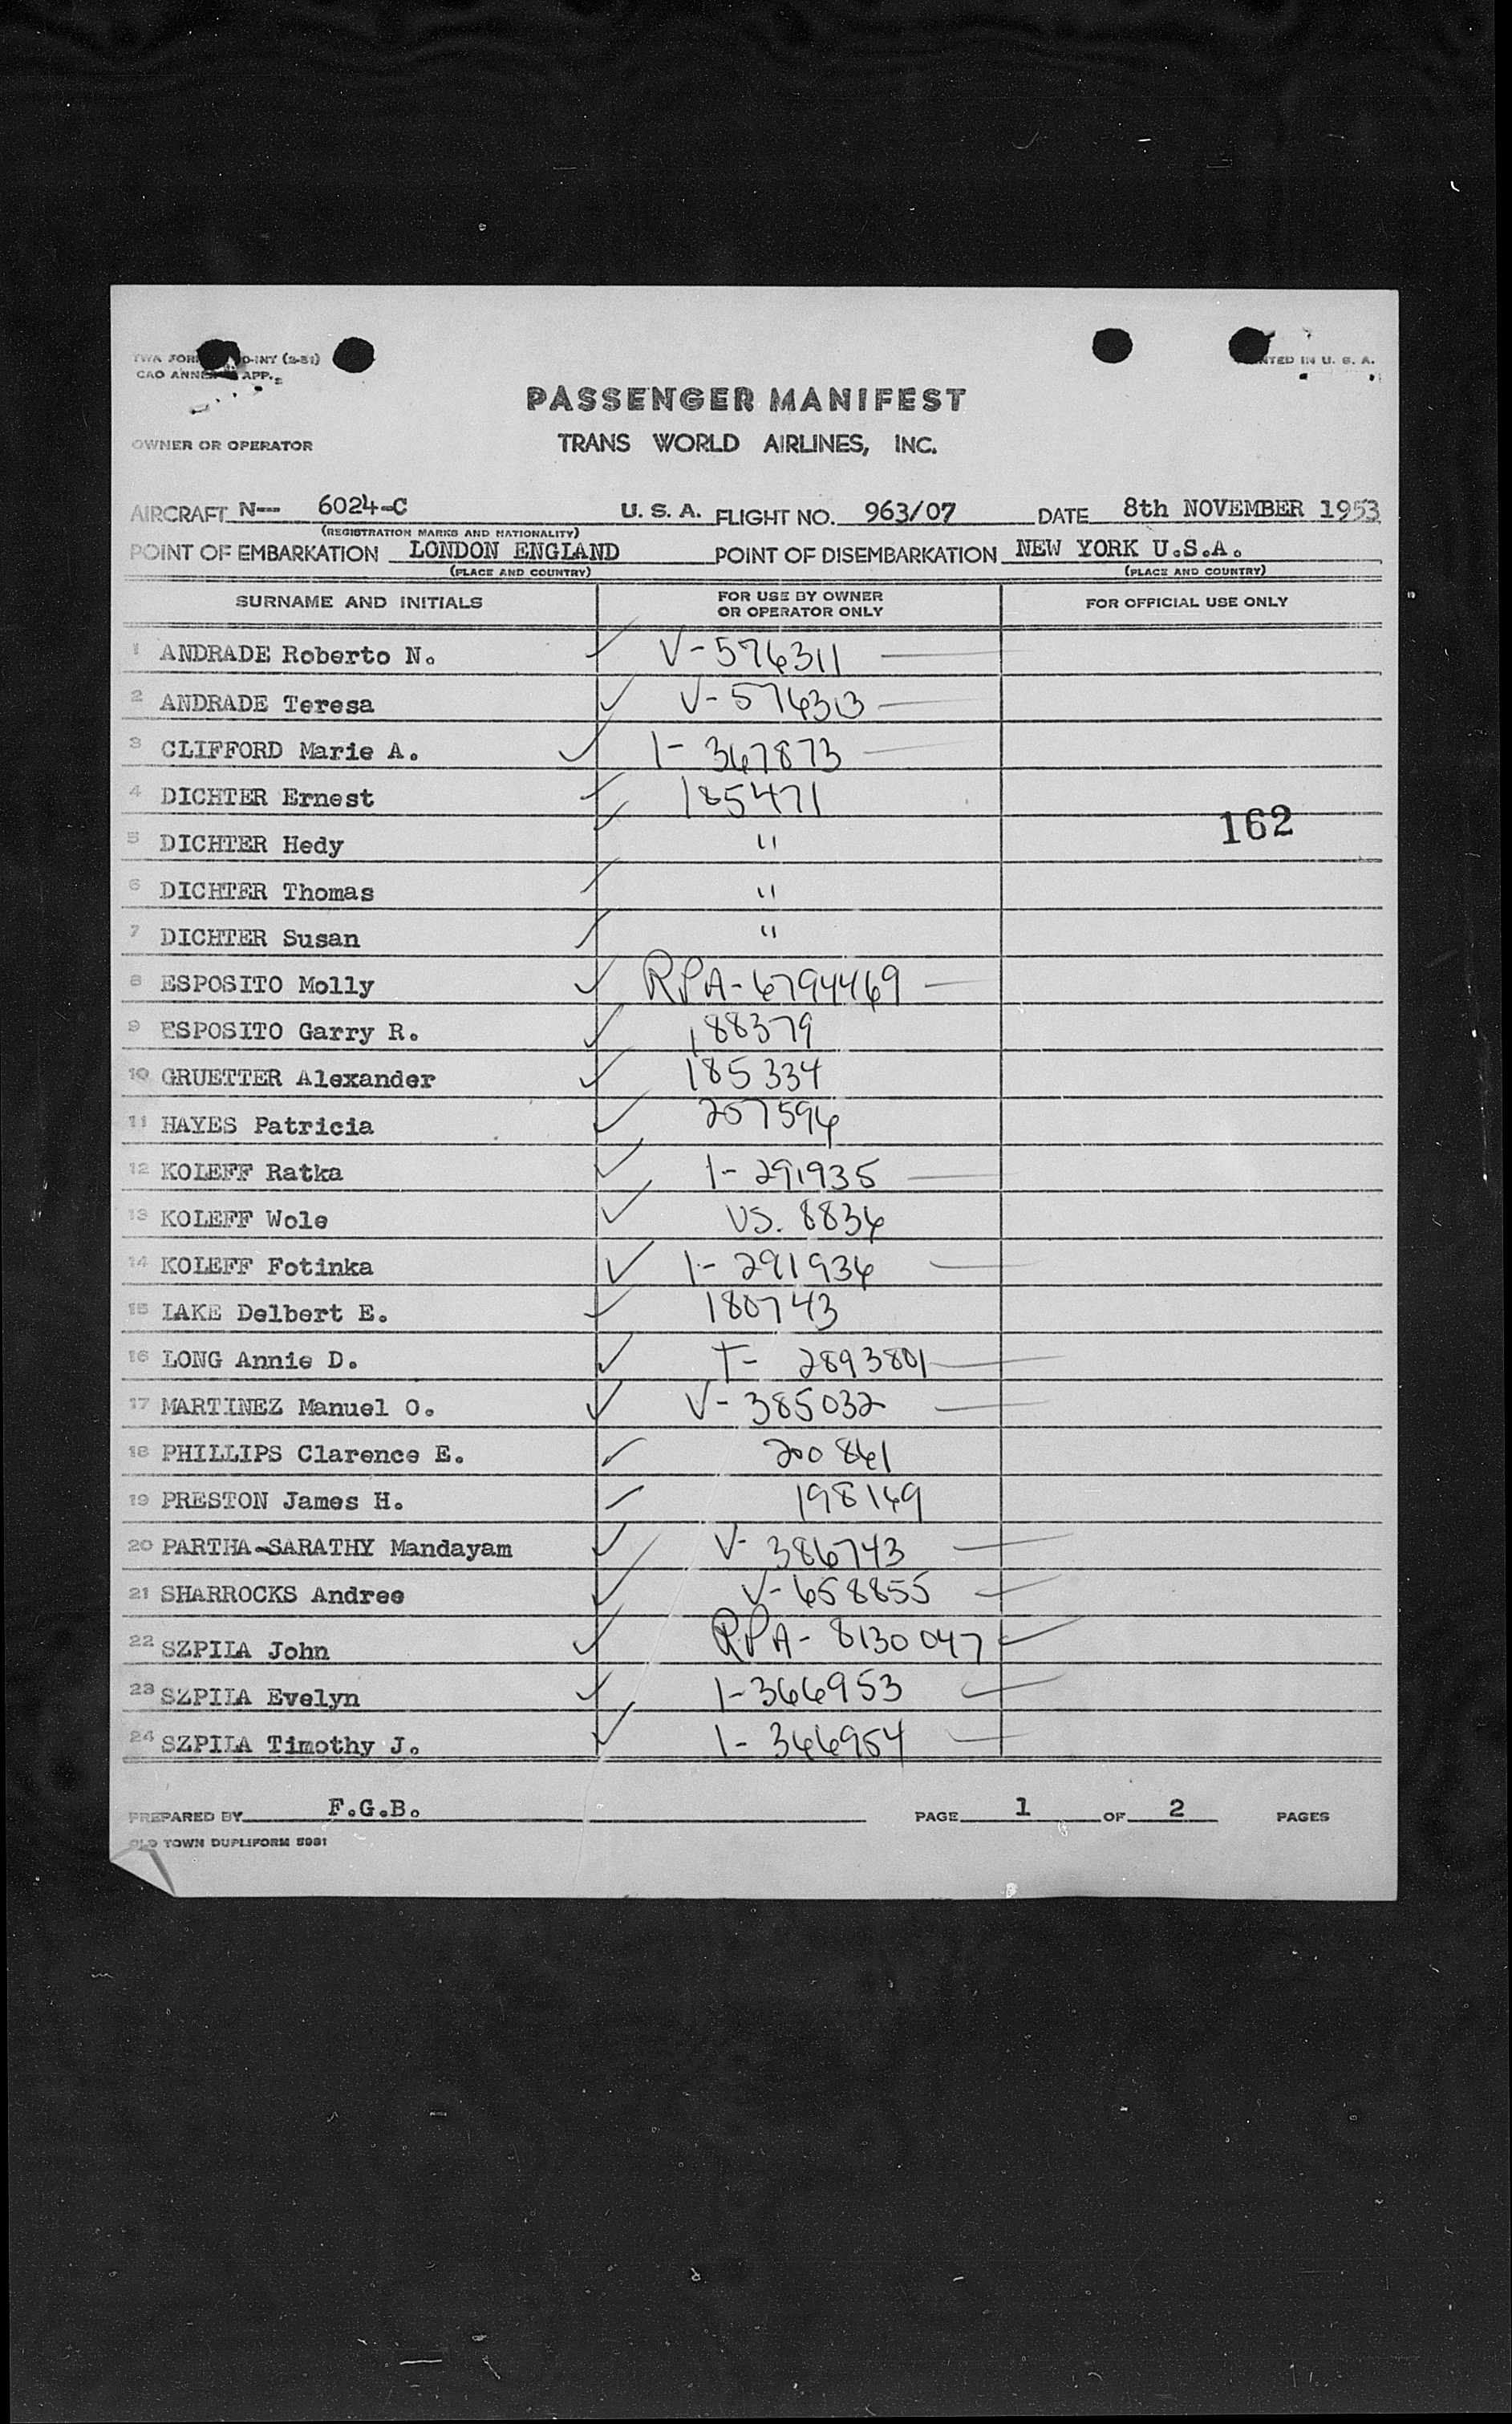 (2-51)
PRINTED IN U. S. A.
PASSENGER MANIFEST
OWNER OR OPERATOR
TRANS WORLD AIRLINES, INC.
AIRCRAFT N-- 6024-C U. S. A. FLIGHT NO. 963/07 DATE 8th NOVEMBER 1953
(REGISTRATION MARKS AND NATIONALITY)
POINT OF EMBARKATION LONDON ENGLAND POINT OF DISEMBARKATION NEW YORK U.S.A.
(PLACE AND COUNTRY) (PLACE AND COUNTRY)
SURNAME AND INITIALS FOR USE BY OWNER OR OPERATOR ONLY FOR OFFICIAL USE ONLY
1 ANDRADE Roberto N. V-576311
2 ANDRADE Teresa V-576313
3 CLIFFORD Marie A. 1-367873
4 DICHTER Ernest 185471
162
5 DICHTER Hedy "
6 DICHTER Thomas "
7 DICHTER Susan "
8 ESPOSITO Molly RPA-6794469
9 ESPOSITO Garry R. 188379
10 GRUETTER Alexander 185334
11 HAYES Patricia 207596
12 KOLEFF Ratka 1-291935
13 KOLEFF Wole VS. 8836
14 KOLEFF Fotinka 1-291936
15 LAKE Delbert E. 180743
16 LONG Annie D. T- 2893801
17 MARTINEZ Manuel O. V-385032
18 PHILLIPS Clarence E. 200861
19 PRESTON James H. 198169
20 PARTHA-SARATHY Mandayam V- 386743
21 SHARROCKS Andree V-658855
22 SZPILA John RPA-8130047
23 SZPILA Evelyn 1-366953
24 SZPILA Timothy J. 1-366954
PREPARED BY F.G.B. PAGE 1 OF 2 PAGES
OLD TOWN DUPLIFORM 5981